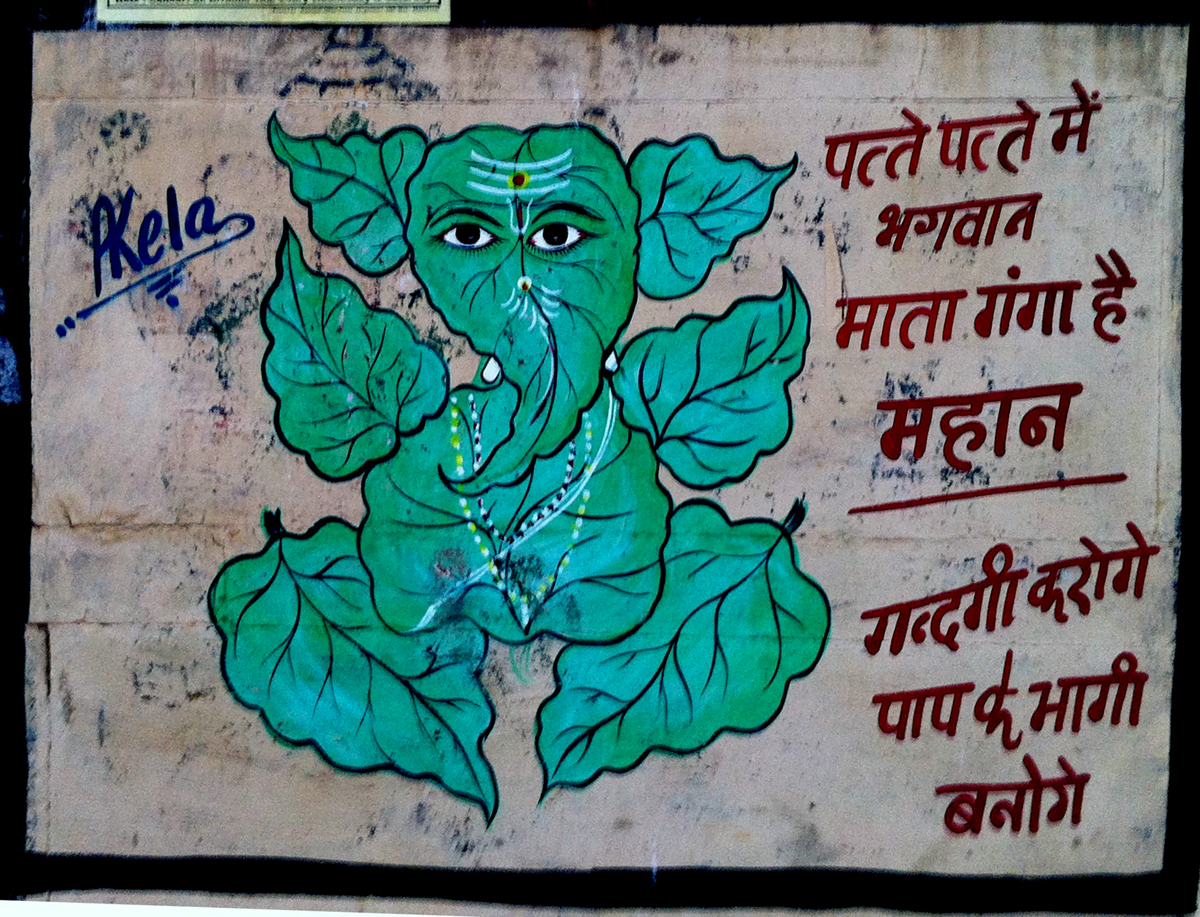 Akela
पत्ते पत्ते में
भगवान
माता गंगा है
महान
गन्दगी करोगे
पाप के भागी
बनोगे